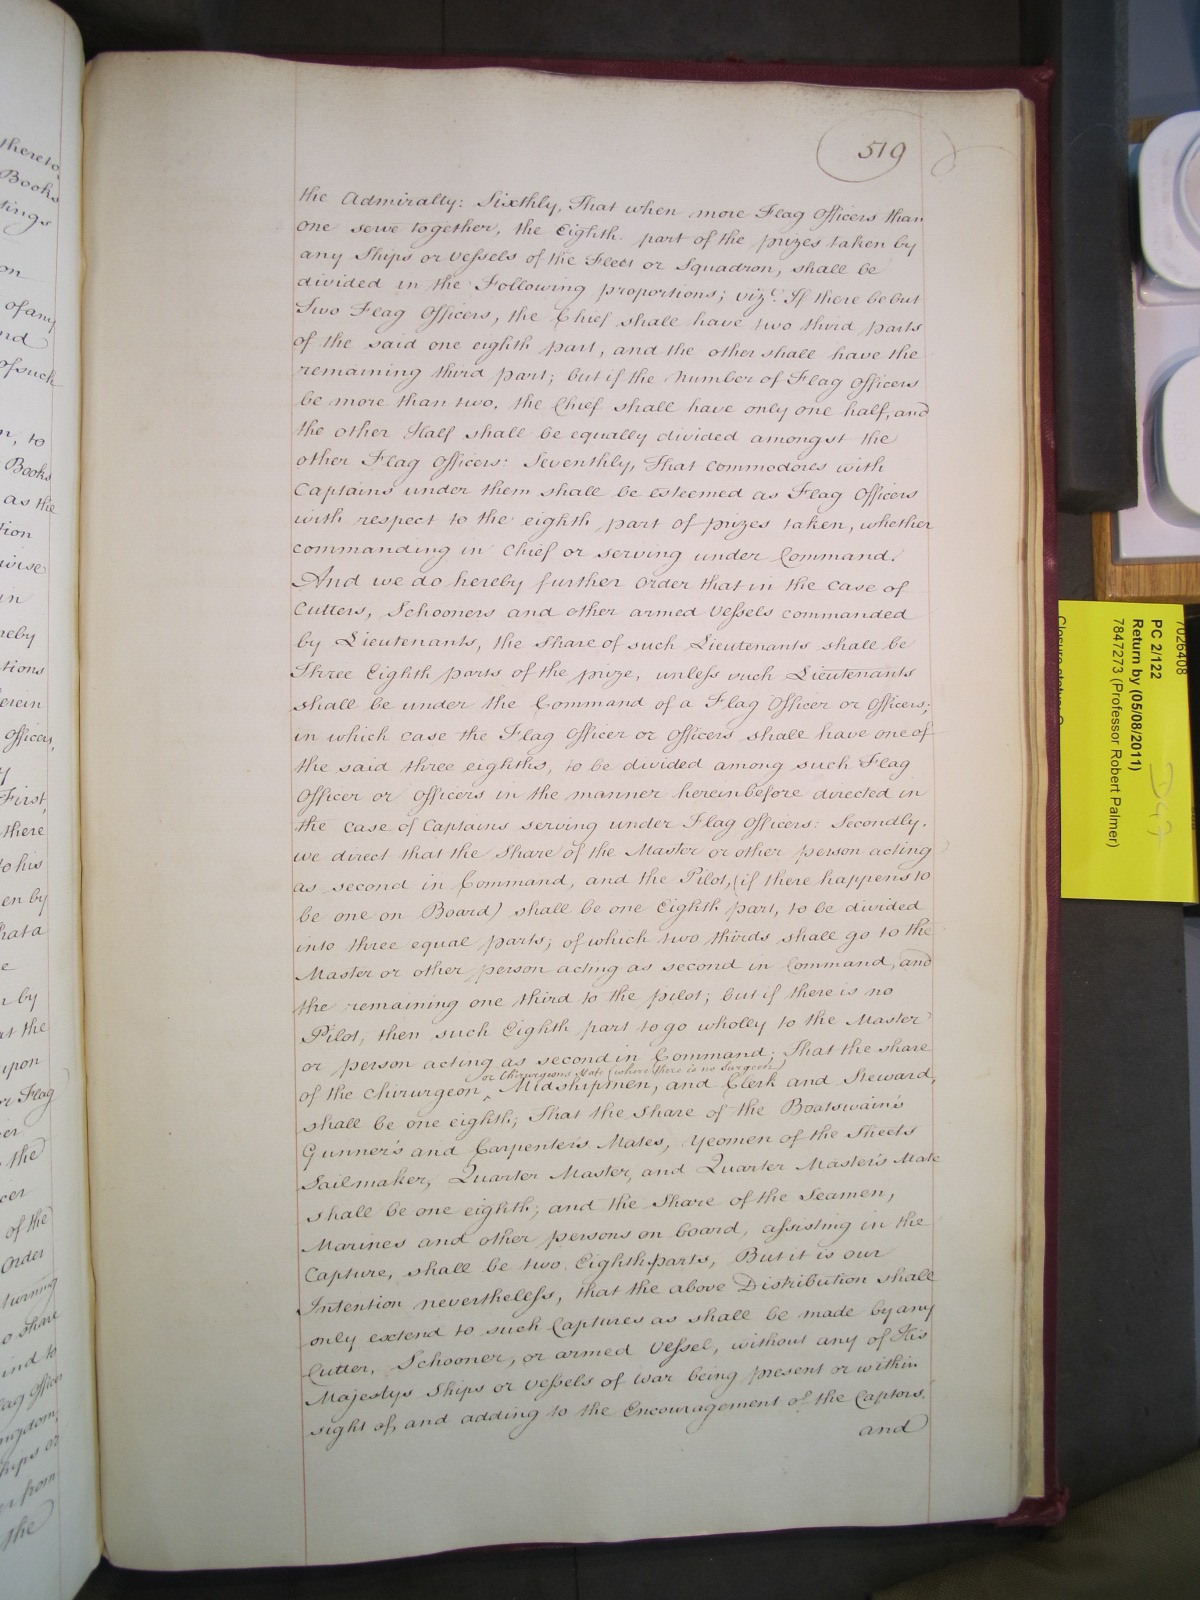 519
the Admiralty: Sixthly, That when more Flag Officers than
one serve together, the Eighth part of the prizes taken by
any Ships or Vessels of the Fleet or Squadron, shall be
divided in the Following proportions; vizt. If there be but
Two Flag Officers, the Chief shall have two third parts
of the said one eighth part, and the other shall have the
remaining third part; but if the Number of Flag Officers
be more than two, the Chief shall have only one half, and
the other Half shall be equally divided amongst the
other Flag Officers: Seventhly, That commodores with
Captains under them shall be esteemed as Flag Officers
with respect to the eighth part of prizes taken, whether
commanding in Chief or serving under Command.
And we do hereby further Order that in the Case of
Cutters, Schooners and other armed Vessels commanded
by Lieutenants, the Share of such Lieutenants shall be
Three Eighth parts of the prize, unless such Lieutenants
shall be under the Command of a Flag Officer or Officers;
in which case the Flag Officer or Officers shall have one of
the said three eighths, to be divided among such Flag
Officer or Officers in the manner hereinbefore directed in
the Case of Captains serving under Flag Officers: Secondly.
we direct that the Share of the Master or other person acting
as second in Command, and the Pilot, (if there happens to
be one on Board) shall be one Eighth part, to be divided
into three equal parts; of which two thirds shall go to the
Master or other person acting as second in Command, and
the remaining one third to the pilot; but if there is no
Pilot, then such Eighth part to go wholly to the Master
or person acting as second in Command; That the share
or Chirurgeons Mate (where there is no Surgeon)
of the Chirurgeon ^ Midshipmen, and Clerk and Steward,
shall be one eighth; That the Share of the Boatswain's
Gunner's and Carpenter's Mates, Yeomen of the Sheets
Sailmaker, Quarter Master, and Quarter Master's Mate
shall be one eighth; and the Share of the Seamen,
Marines and other persons on board, assisting in the
Capture, shall be two Eighth parts, But it is our
Intention nevertheless, that the above Distribution shall
only extend to such Captures as shall be made by any
Cutter, Schooner, or armed Vessel, without any of His
Majestys Ships or Vessels of War being present or within
sight of, and adding to the Encouragement of the Captors.
and
thereto,
Books
on
of any
of such
to
Books
as the
tion
wise
in
tions
Officers,
First,
there
to his
by
that a
by
the
upon
Flag
the
of the
Order
share
to
or
from
the
7026408
PC 2/122
Return by (05/08/2011)
7847273 (Professor Robert Palmer)